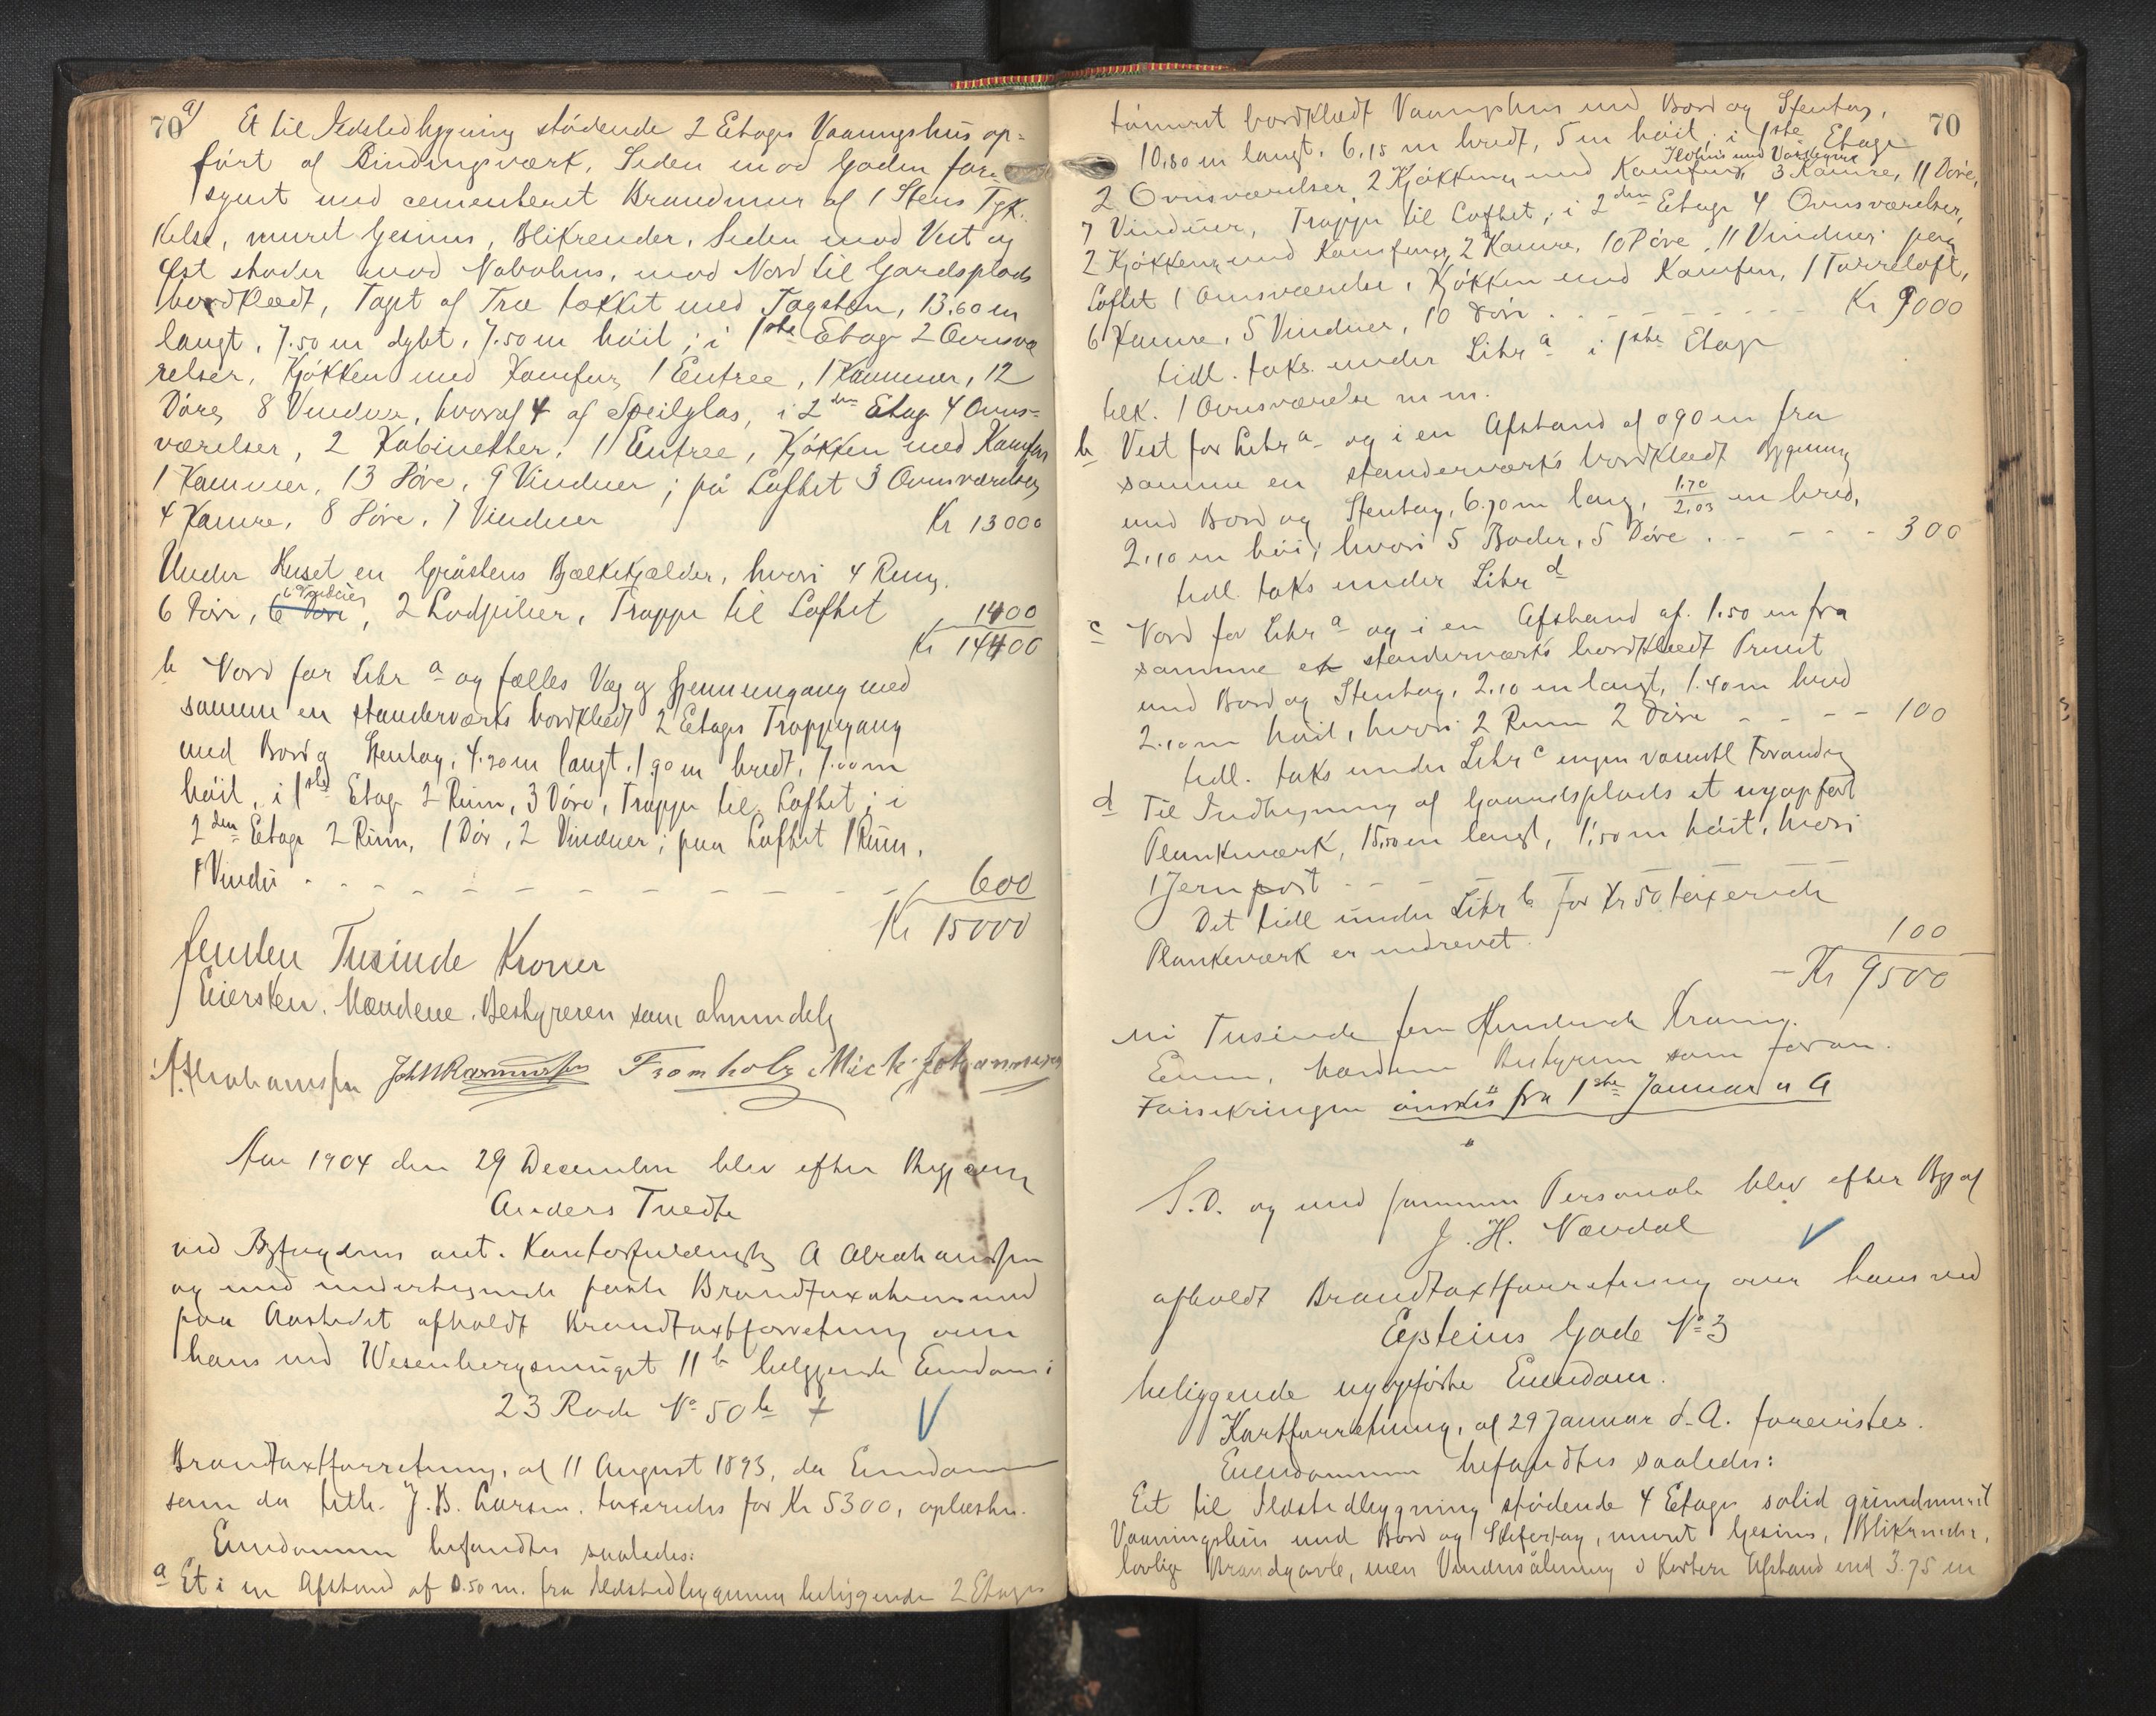 70
a) Et til Ildsted bygning stödende 2 Etages Vaaningshus op-
fört af Bindingsværk, Siden mod Gaden for-
synet med cementeret Brandmur af 1 Stens Tyk-
kelse, muret Gesims, Blikrender, Siden mod Vest og
Öst stöder mod Nabohus, mod Nord til Gaardsplads
bordklædt, Taget af Træ tækket med Tagsten, 13.60 m
langt, 7.50 m dybt, 7.50 m höit; i 1ste Etage 2 Ovnsvæ
relser, Kjökken med Komfur, 1 Entree, 1 Kammer, 12
Döre, 8 Vinduer, hvoraf 4 af Speilglas, i 2den Etage 4 Ovns-
værelser, 2 Kabinetter, 1 Entree, Kjökken med Komfur
1 Kammer, 13 Döre, 9 Vinduer; på Loftet 3 Ovnsværelser,
4 Kamre, 8 Döre, 7 Vinduer Kr 13000
Under Huset en Gråstens Bjælkekjælder, hvori 4 Rum,
6 Vinduer
6 Döre, 6 Döre, 2 Lodpiber, Trappe til Loftet 1400
Kr 14400
b Nord for Litr a og fælles Væg og Gjennemgang med
samme en standerværks bordklædt 2 Etages Trappegang
med Bord og Stentag, 4.20 m langt, 1.90 m bredt, 7.00 m
höit, i 1ste Etage 2 Rum, 3 Döre, Trappe til Loftet; i
2den Etage 2 Rum, 1 Dör, 2 Vinduer; paa Loftet 1 Rum,
1 Vindu - - - 600
Kr 15000
femten Tusinde Kroner
Eiersken, Mændene, Bestyreren som almindelig
A. Abrahamsen Joh N Rasmussen Fromholz Mick. Johannesen
Aar 1904 den 29 December blev efter Begjæring
Anders Tvedte
ved Byfogdens aut. Kontorfuldmægtig A Abrahamsen
og med undertegnede faste Brandtaxationsmænd
paa Aastedet afholdt Brandtaxtforretning over
hans ved Wesenbergsmuget 11b beliggende Eiendom i
23 Rode No 50b
Brandtaxtforretning, af 11 August 1893, da Eiendommen
som da tilh. J. B. Larsen, taxeredes for Kr 5300, oplæstes.
Eiendommen befandtes saaledes:
a Et i en Afstand af 0.50 m. fra Ildstedbygning beliggende 2 Etages
70
tömret bordklædt Vaaningshus med Bord og Stentag,
10.80 m langt, 6.15 m bredt, 5 m höit; i 1ste Etage
2 Ovnsværelser, 2 Kjökkener med Komfur, 3 Kamre, 11 Döre,
7 Vinduer, Trappe til Loftet; i 2den Etage 4 Ovnsværelser,
2 Kjökkener med Komfurer, 2 Kamre, 10 Döre, 11 Vinduer; paa
Loftet 1 Ovnsværelse, Kjökken med Komfur, 1 Törreloft,
6 Kamre, 5 Vinduer, 10 Döre - - - Kr 9000
tidl. taks. under Litr a i 1ste Etage
bek. 1 Ovnsværelse m m.
b Vest for Litr a og i en Afstand af 0 90 m fra
samme en standerværks bordklædt Bygning
med Bord og Stentag, 6.70 m lang, 1.70/2.03 m bred,
2.10 m höi, hvori 5 Boder, 5 Döre - - - 300
tidl. taks under Litr d
c Nord for Litr a og i en Afstand af 1.50 m fra
samme et standerværks bordklædt Privet
med Bord og Stentag, 2.10 m langt, 1.40 m bred
2.10 m höit, hvori 2 Rum 2 Döre - - - 100
tidl. taks under Litr c ingen væsentl Forandrg
d Til Indhegning af Gaardsplads et nyopfört
Plankeværk, 15.50 m langt, 1.50 m höit, hvori
1 Jernport - - -
Det tidl under Litr b for Kr 50 taxerede
Plankeværk er nedrevet. 100
Kr 9500
ni Tusinde fem Hundrede Kroner.
Eieren, Mændene Bestyreren som foran.
Forsikringen önskes fra 1ste Januar n A
S.D. og med samme Personale blev efter Beg af
J. H. Nævdal
afholdt Brandtaxtforretning over hans ved
Epsteins Gade No 3
beliggende nyopförte Eiendom.
Kartforretning, af 29 Januar d.A. forevistes.
Eiendommen befandtes saaledes:
Et til Ildstedbygning stödende 4 Etages solid grundmuret
Vaaningshus med Bord og Skifertag, muret Gesims, Blikrender,
lovlige Brandgavle, men Vinduesåbning i kortere Afstand end 3.75 m